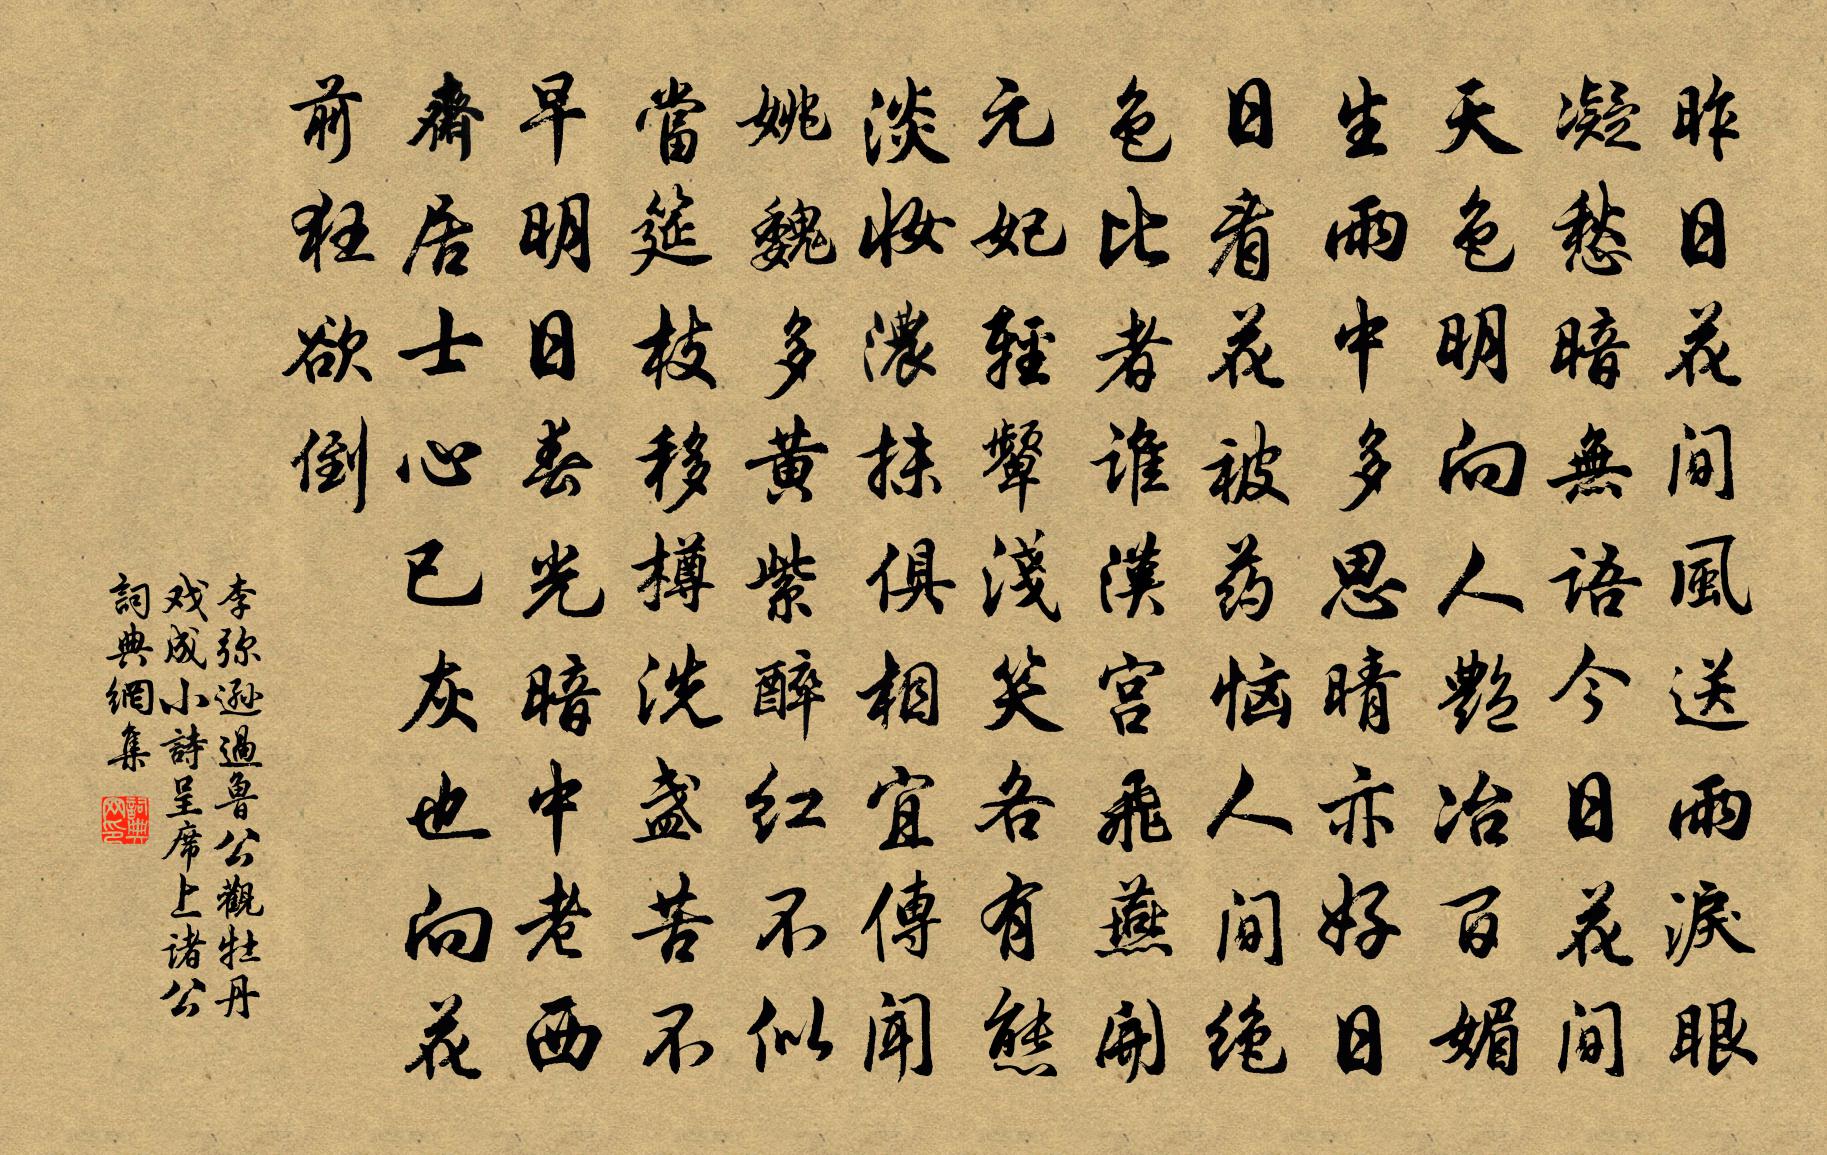 昨日花间風送雨淚眼
凝愁暗無語今日花间
天色明向人艷冶百媚
生雨中多思晴亦好日
日看花被药恼人间绝
色比者谁漢宫飛燕開
元妃輕顰淺笑各有態
淡妝濃抹俱相宜傳闻
姚魏多黄紫醉红不似
當筵枝移樽洗盏苦不
早明日春光暗中老西
齋居士心已灰也向花
前狂欲倒
李弥逊過魯公觀牡丹
戏成小詩呈席上诸公
詞典網集
詞典网印